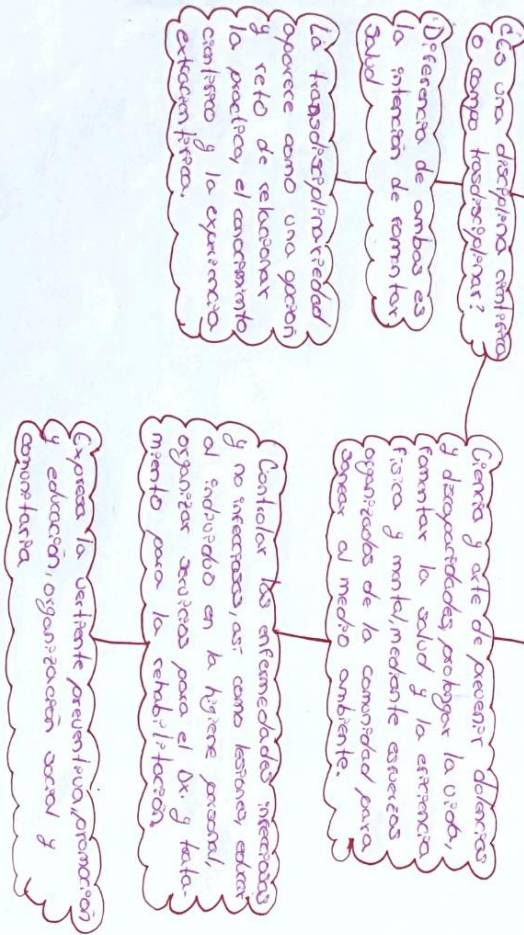 ¿Es una disciplina científica
o campo trasdisciplinar?
Diferencia de ambas es
la intención de fomentar
salud
La transdisciplinariedad
aparece como una opción
y reto de relacionar
la practica, el conocimiento
científico y la experiencia
extracientífica.
Ciencia y arte de prevenir dolencias
y discapacidades, prolongar la vida,
fomentar la salud y la eficiencia
física y mental, mediante esfuerzos
organizados de la comunidad para
sanear al medio ambiente.
Controlar las enfermedades infecciosas
y no infecciosas, así como lesiones, educar
al individuo en la higiene personal,
organizar servicios para el Dx. y trata-
miento para la rehabilitación.
Expresa la vertiente preventiva, promoción
y educación, organización social y
comunitaria